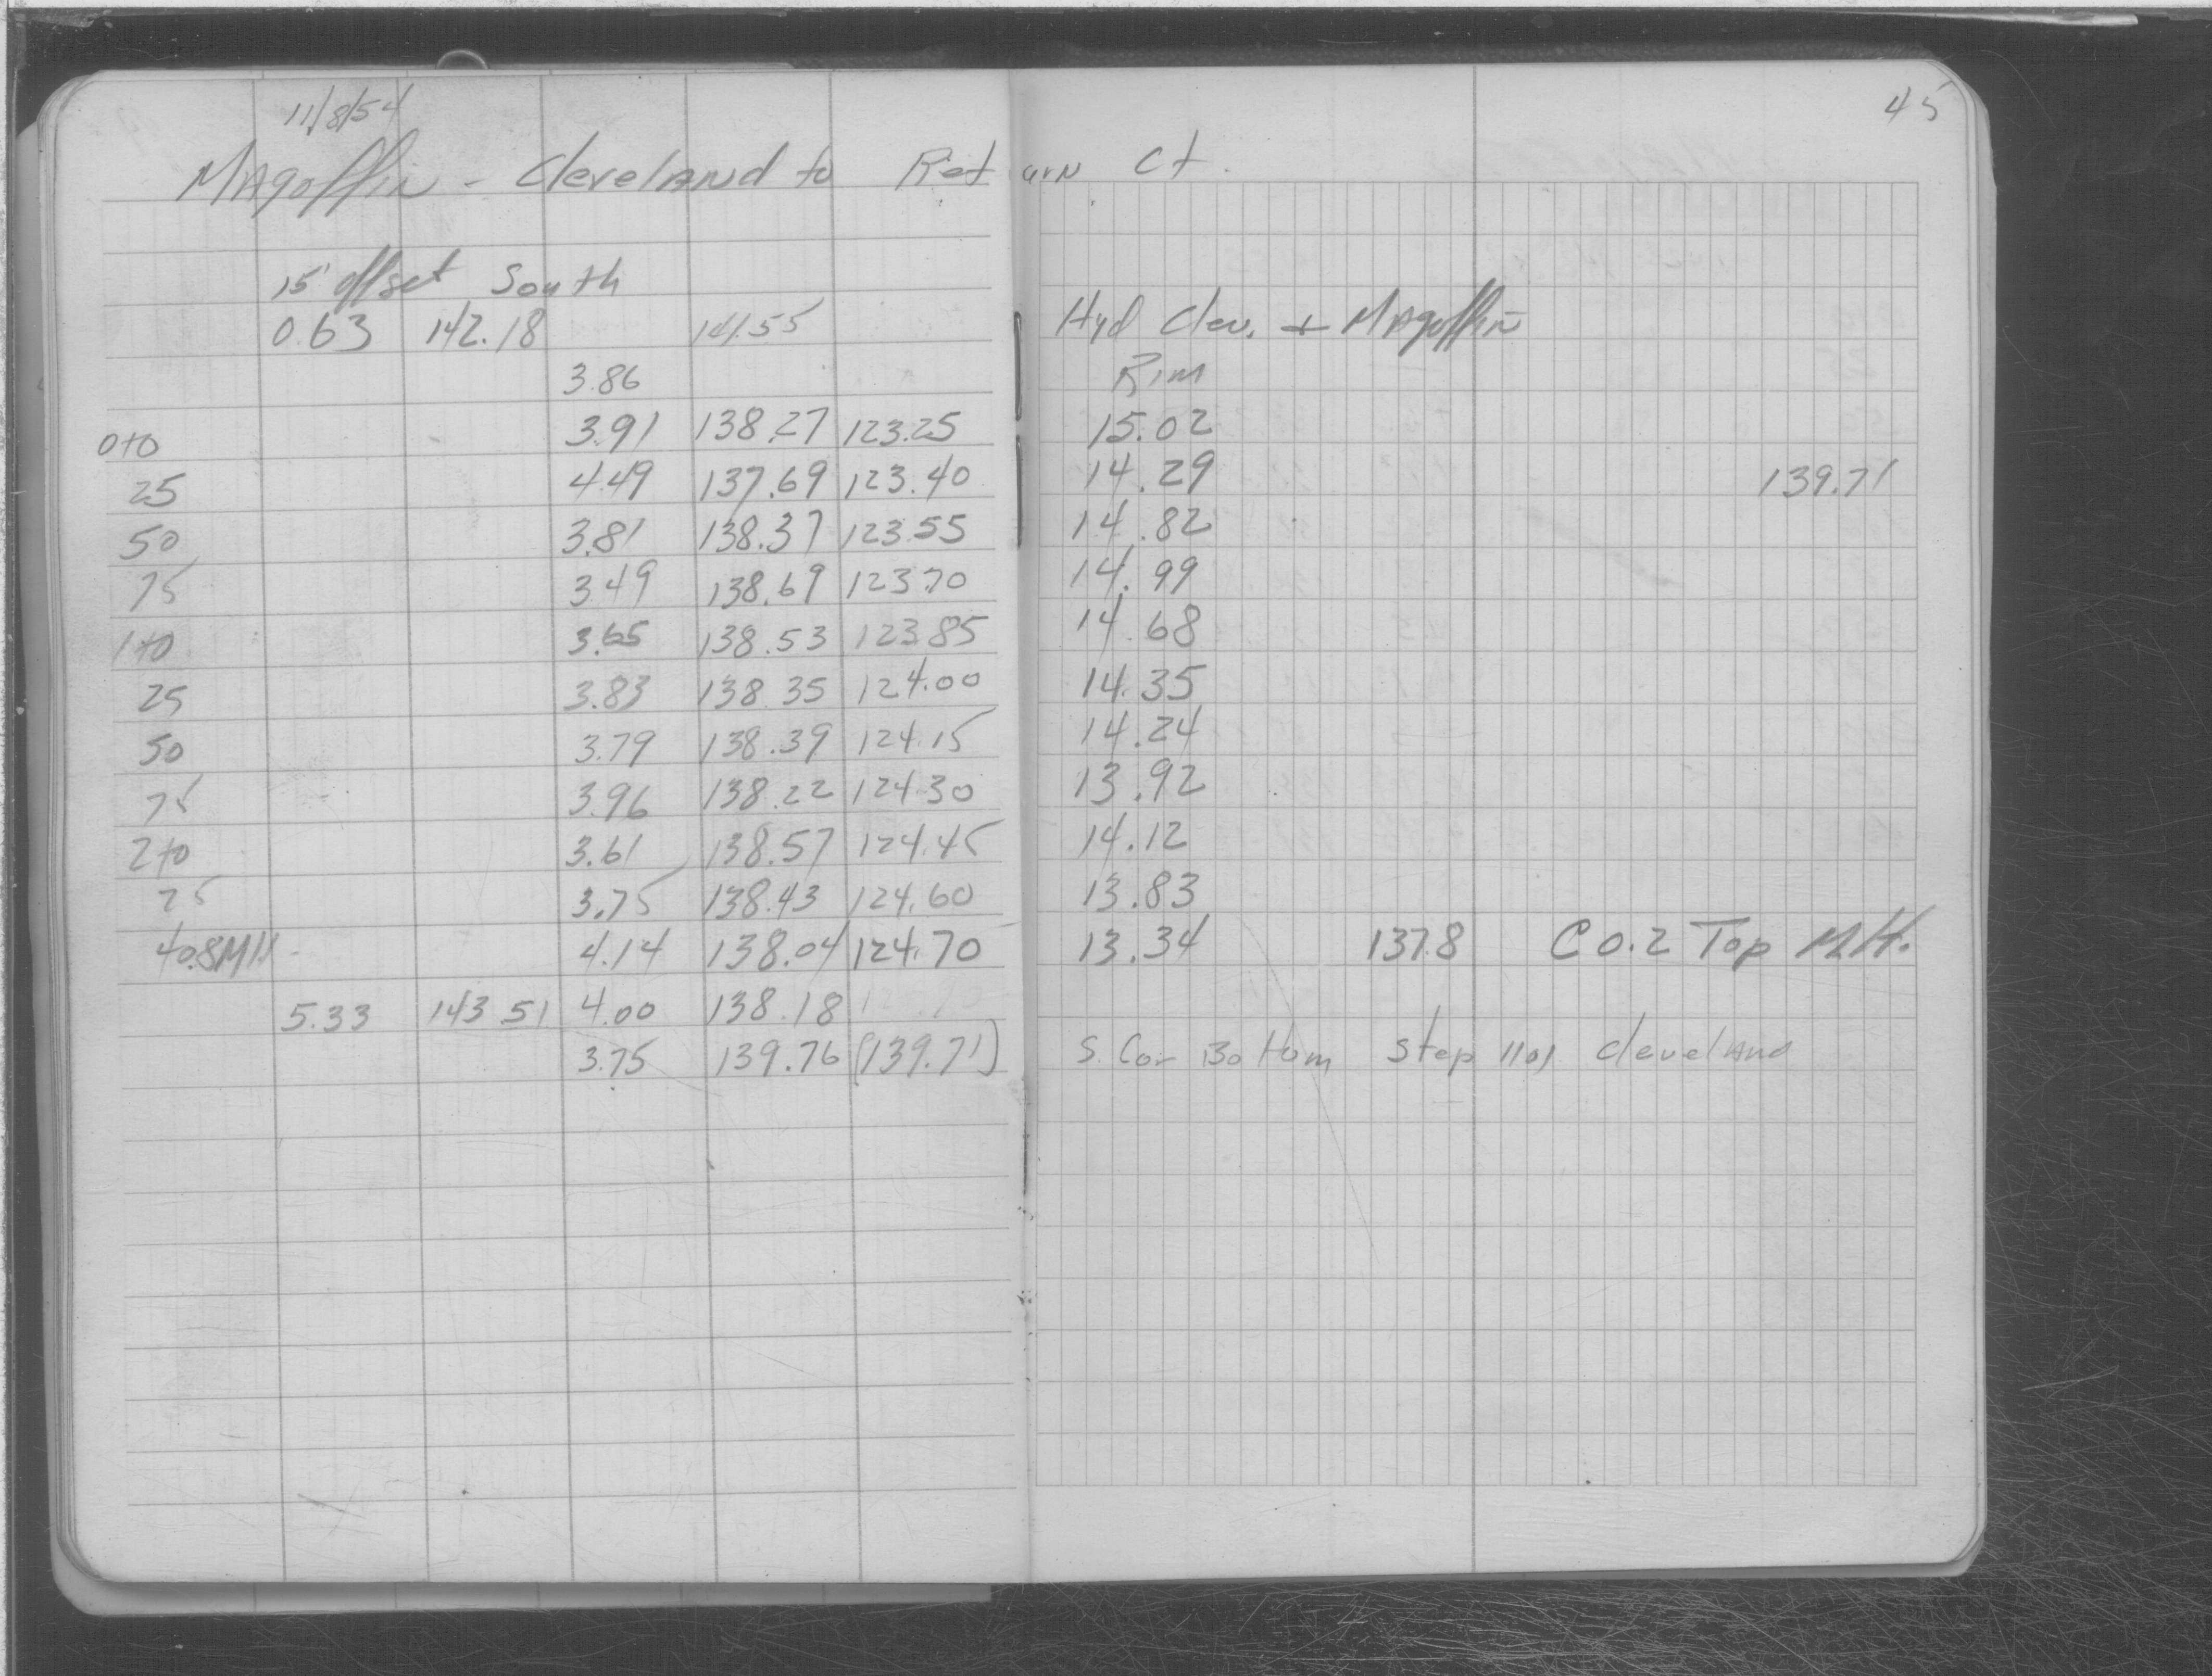 45
11/8/54
Magoffin - Cleveland to Return Ct.
15' offset South
0.63 142.18 141.55 Hyd Clev. + Magoffin
3.86 Rim
0+0 3.91 138.27 123.25 15.02
25 4.49 137.69 123.40 14.29 139.71
50 3.81 138.37 123.55 14.82
75 3.49 138.69 123.70 14.99
1+0 3.65 138.53 123.85 14.68
25 3.83 138.35 124.00 14.35
50 3.79 138.39 124.15 14.24
75 3.96 138.22 124.30 13.92
2+0 3.61 138.57 124.45 14.12
25 3.75 138.43 124.60 13.83
40.8MH 4.14 138.04 124.70 13.34 137.8 C 0.2 Top M.H.
5.33 143.51 4.00 138.18
3.75 139.76 (139.71) S. Cor Bottom Step 1101 Cleveland